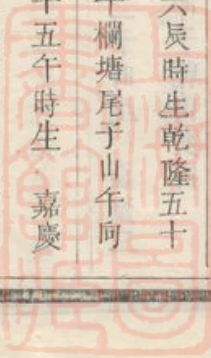 六辰時生乾隆五十
午欄塘尾子山午向
十五午時生　嘉慶